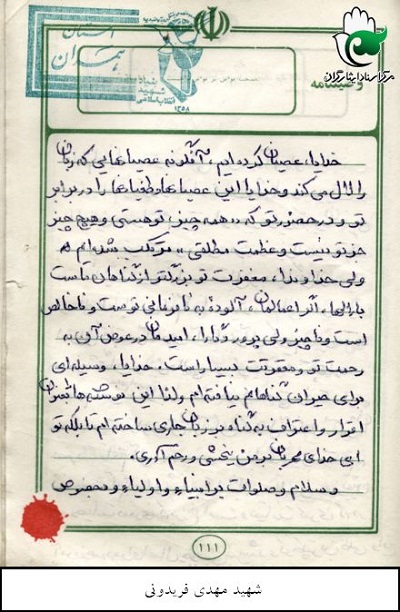 استان
تهران
بنیاد
شهید
انقلاب اسلامی
۱۳۵۸
مرکز اسناد ایثارگران
وصیتنامه
خدایا، عصیان کرده‌ایم، آنگونه عصیانهایی که زبان
را لال می‌کند و خدایا این عصیانها و طغیانها را در برابر
تو و در حضور تو که «همه چیز، تو هستی و هیچ چیز
جز تو نیست و عظمت مطلقی» مرتکب شده‌ایم
ولی خداوندا، مغفرت تو بزرگتر از گناهان ماست
بارالها، اگر اعمالمان، آلوده به نافرمانی توست و ناخالص
است و ناچیز ولی پروردگارا، امیدمان در عوض آن به
رحمت تو و مغفرتت بسیار است، خدایا، وسیله‌ای
برای جبران گناهانم نیافته‌ام ولذا این نوشته‌ها بعنوان
اقرار و اعتراف به گناه بر زبان جاری ساخته‌ام تا بلکه تو
ای خدای مهربان بر من ببخشی و رحم آوری.
و سلام و صلوات بر انبیاء و اولیاء و بخصوص
۱۱۱
شهید مهدی فریدونی